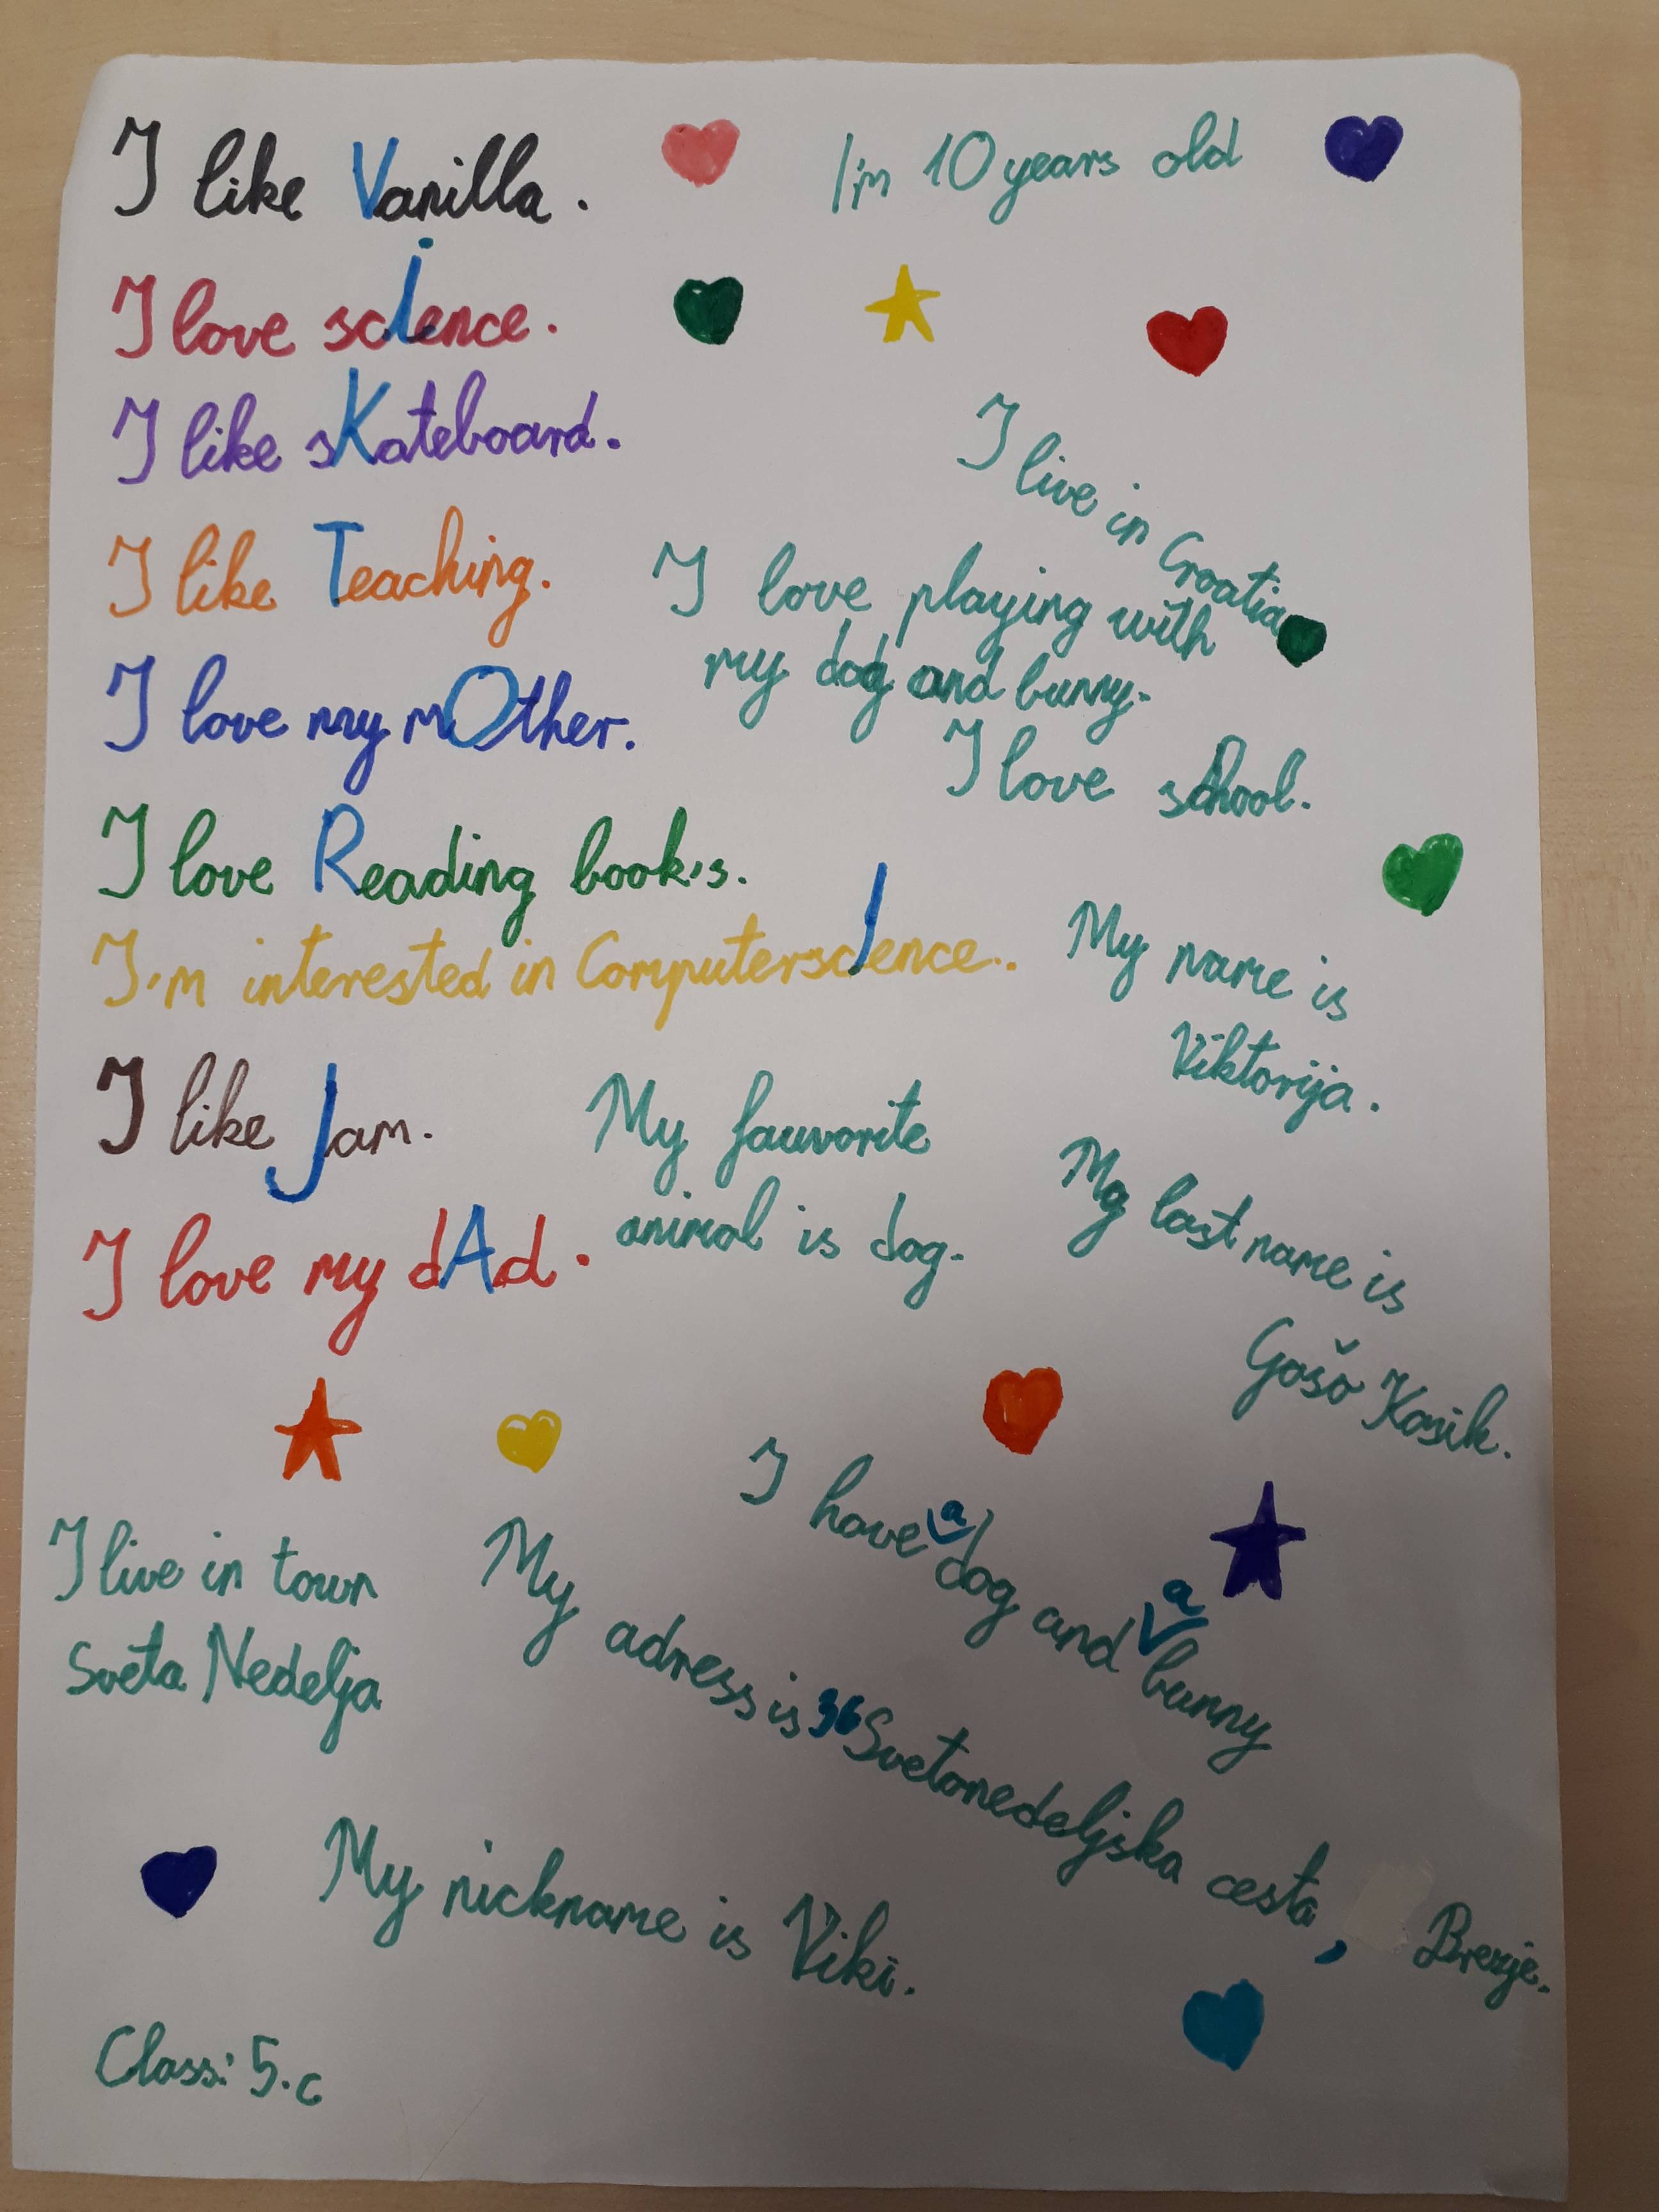 I like Vanilla.
I'm 10 years old
I love scIence.
I like sKateboard.
I live in Croatia
I like Teaching.
I love playing with
my dog and bunny.
I love my mOther.
I love school.
I love Reading book's.
I'm interested in ComputerscIence..
My name is
Viktorija.
I like Jam.
My fauvorite
animal is dog.
My last name is
Gošo Kosik.
I love my dAd.
I have a dog and a bunny
I live in town
Sveta Nedelja
My adress is 36 Svetonedeljska cesta, Brezje.
My nickname is Viki.
Class: 5.c